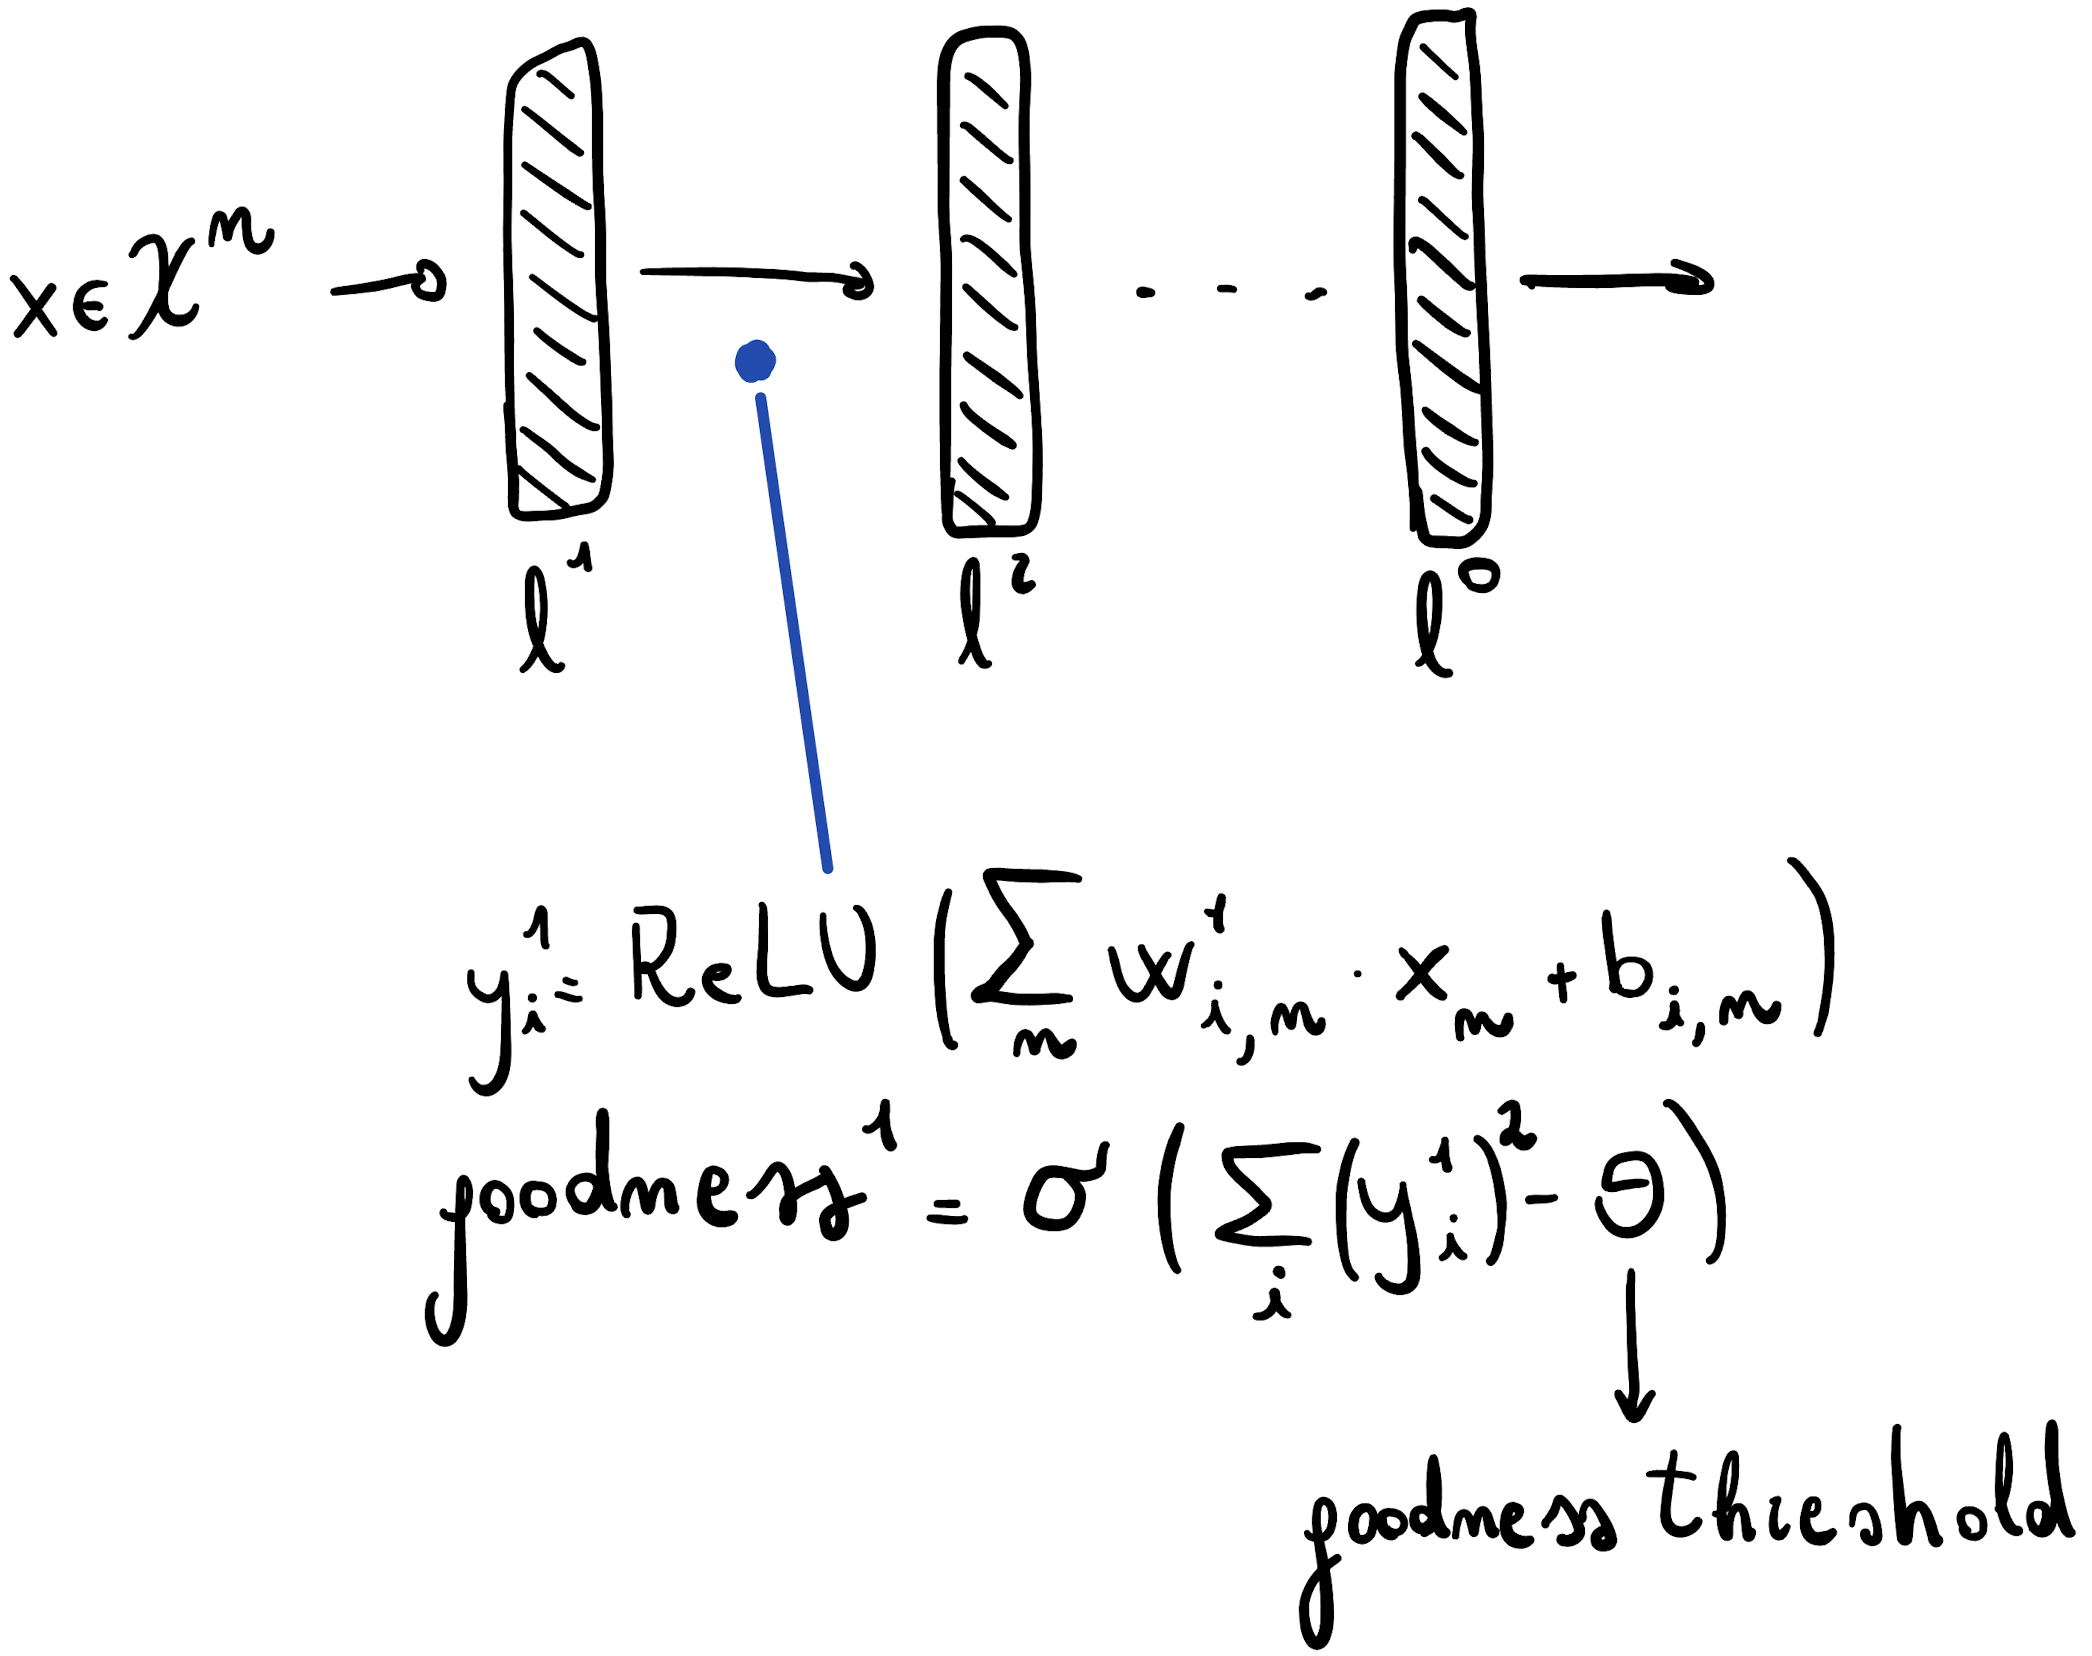 x ∈ 𝒳ⁿ
l¹ l² l⁰
y¹ᵢ = ReLU (∑ₘ w¹ᵢ,ₘ · xₘ + bᵢ,ₘ)
goodness¹ = σ (∑ᵢ (y¹ᵢ)² - θ)
goodness threshold